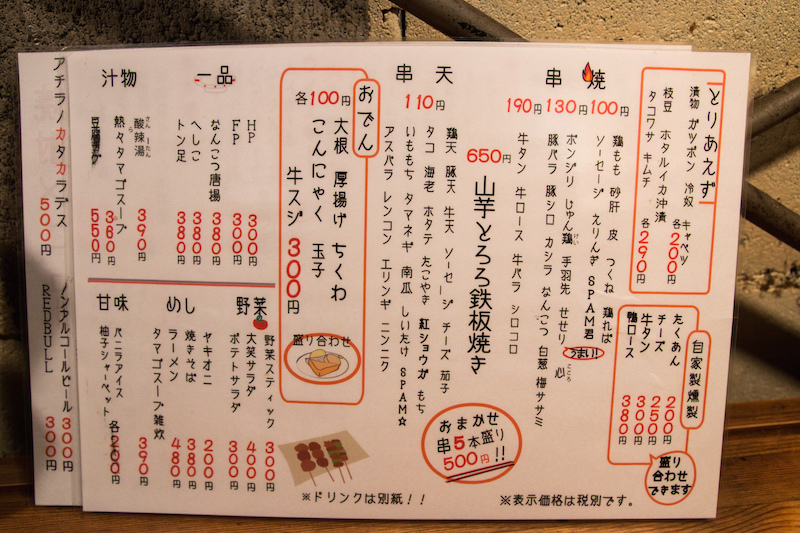 とりあえず
漬物 ガツポン 冷奴
キャベツ
各200円
枝豆 ホタルイカ沖漬
タコワサ キムチ
各290円
自家製燻製
たくあん 200円
チーズ 250円
牛タン 300円
鴨ロース 380円
盛り
合わせ
できます
串 焼
100円
鶏もも 砂肝 皮 つくね 鶏れば
ソーセージ えりんぎ SPAM君 うまい!!
130円
ボンジリ じゅん鶏 手羽先 せせり 心
けい
こころ
豚バラ 豚シロ カシラ なんこつ 白葱 梅ササミ
190円
牛タン 牛ロース 牛バラ シロコロ
650円
山芋とろろ鉄板焼き
串 天
110円
鶏天 豚天 牛天 ソーセージ チーズ 茄子
タコ 海老 ホタテ たこやき 紅ショウガ もち
いももち タマネギ 南瓜 しいたけ SPAM☆
アスパラ レンコン エリンギ ニンニク
おまかせ
串5本盛り
500円!!
おでん
各100円
大根 厚揚げ ちくわ
こんにゃく 玉子
牛スジ 300円
盛り合わせ
一品
HP 300円
FP 300円
なんこつ唐揚 380円
へしこ 380円
トン足 380円
汁物
さんらーたん
酸辣湯 390円
熱々タマゴスープ 360円
550円
野菜
野菜スティック 300円
大笑サラダ 450円
ポテトサラダ 300円
めし
ヤキオニ 200円
焼きそば 380円
ラーメン 480円
タマゴスープ雑炊 480円
甘味
バニラアイス 390円
柚子シャーベット 各200円
※ドリンクは別紙!!
※表示価格は税別です。
アチラノカタカラデス 500円
ノンアルコールビール 300円
REDBULL 300円